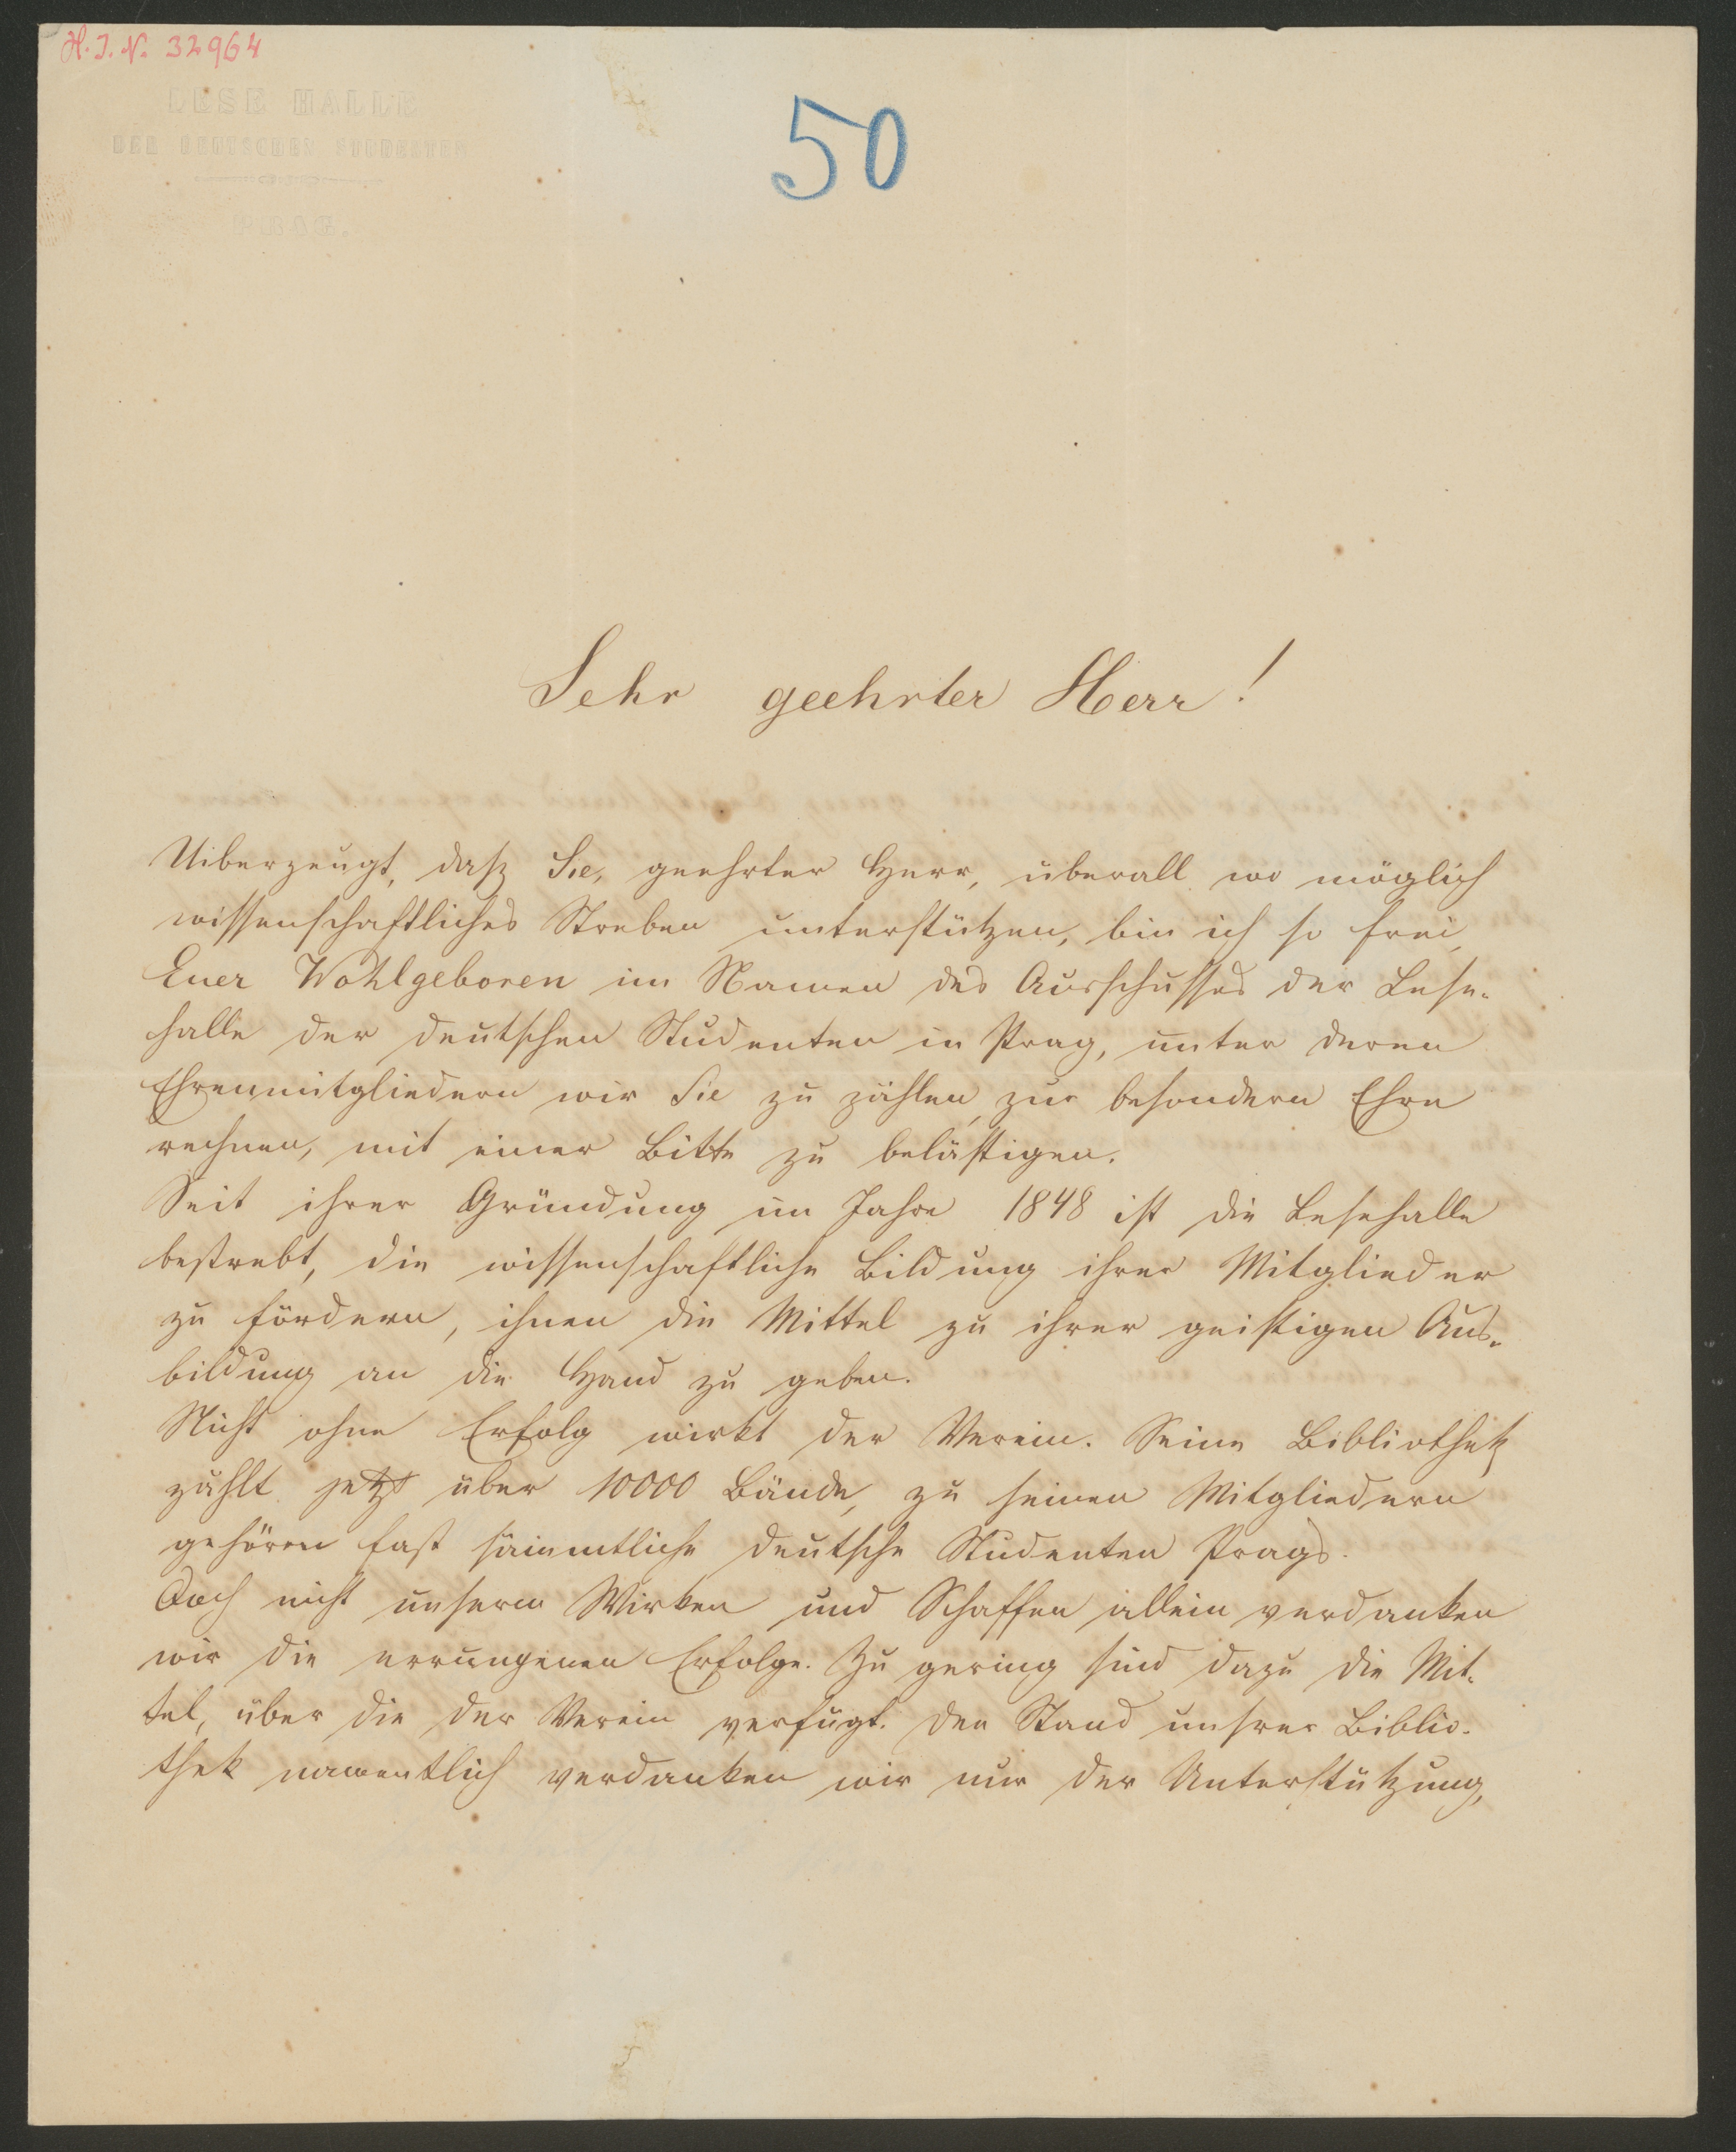 H. I. N. 32964
LESE HALLE
DER DEUTSCHEN STUDENTEN
PRAG.
50
Sehr geehrter Herr!
Uiberzeugt, daß Sie, geehrter Herr, überall wo möglich
wissenschaftliches Streben unterstützen, bin ich so frei,
Euer Wohlgeboren im Namen des Ausschusses der Lese-
halle der deutschen Studenten in Prag, unter deren
Ehrenmitgliedern wir Sie zu zählen, zur besondern Ehre
rechnen, mit einer Bitte zu belästigen.
Seit ihrer Gründung im Jahre 1848 ist die Lesehalle
bestrebt, die wissenschaftliche Bildung ihrer Mitglieder
zu fördern, ihnen die Mittel zu ihrer geistigen Aus-
bildung an die Hand zu geben.
Nicht ohne Erfolg wirkt der Verein. Seine Bibliothek
zählt jetzt über 10000 Bände, zu seinen Mitgliedern
gehören fast sämmtliche deutsche Studenten Prags.
Doch nicht unserm Wirken und Schaffen allein verdanken
wir die errungenen Erfolge. Zu gering sind dazu die Mit-
tel, über die der Verein verfügt. Den Stand unsrer Biblio-
thek namentlich verdanken wir nur der Unterstützung,